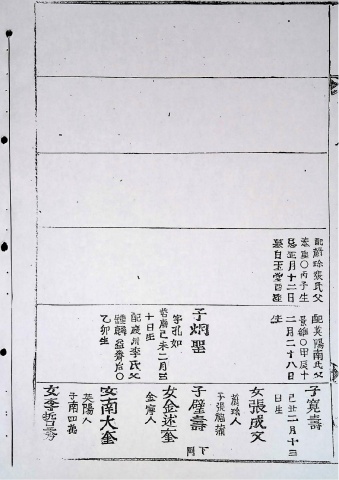 配蔚珍張氏父
泰墟○丙子生
忌五月十二日
墓白玉堂酉坐
子炳聖
字孔如
哲廟己未二月三
十日生
配慶州李氏父
鍾麟益齊后○
乙卯生
配英陽南氏父
景鎬○甲辰十
二月二十八日
生
子寬壽
己丑二月十三
日生
女張成文
蔚珍人
子張
子璧壽
女金述奎
金寧人
女南大奎
英陽人
子南四萬
女李哲秀
下同